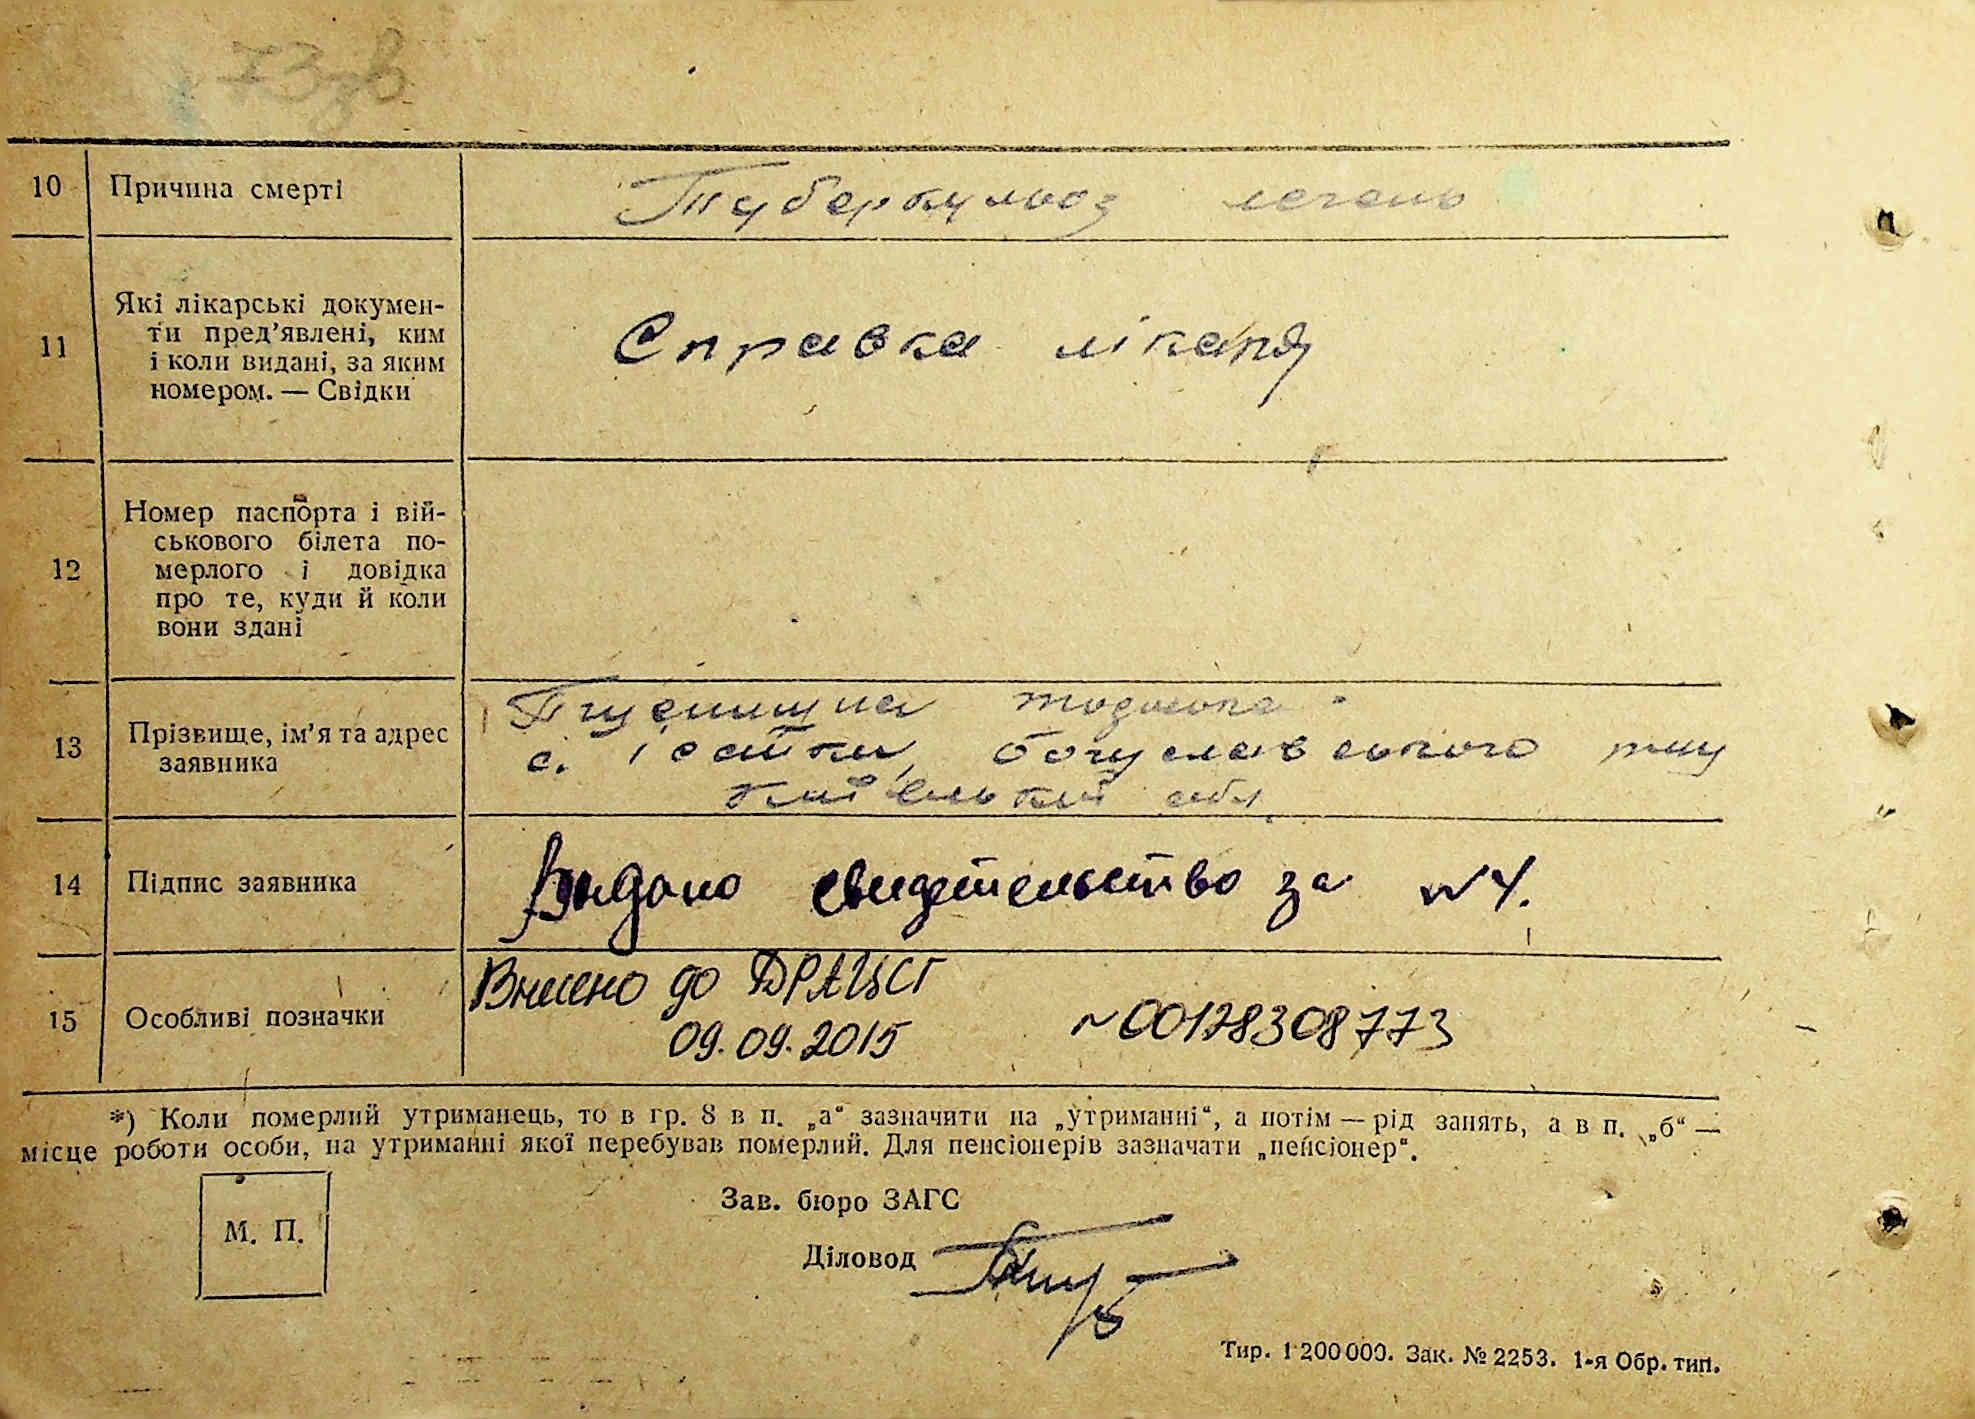 10 Причина смерті Туберкульоз легень
11 Які лікарські докумен-
ти пред'явлені, ким
і коли видані, за яким
номером. — Свідки
Справка лікаря
12 Номер паспорта і вій-
ськового білета по-
мерлого і довідка
про те, куди й коли
вони здані
13 Прізвище, ім'я та адрес
заявника
с. Ісайки, Богуславського р-ну
Київської обл
14 Підпис заявника Видано свидетельство за №4.
15 Особливі позначки
Внесено до ДРАЦСГ
09.09.2015 №00128308773
*) Коли померлий утриманець, то в гр. 8 в п. „а“ зазначити на „утриманні“, а потім — рід занять, а в п. „б“ —
місце роботи особи, на утриманні якої перебував померлий. Для пенсіонерів зазначати „пенсіонер“.
М. П.
Зав. бюро ЗАГС
Діловод
Тир. 1 200 000. Зак. № 2253. 1-я Обр. тип.